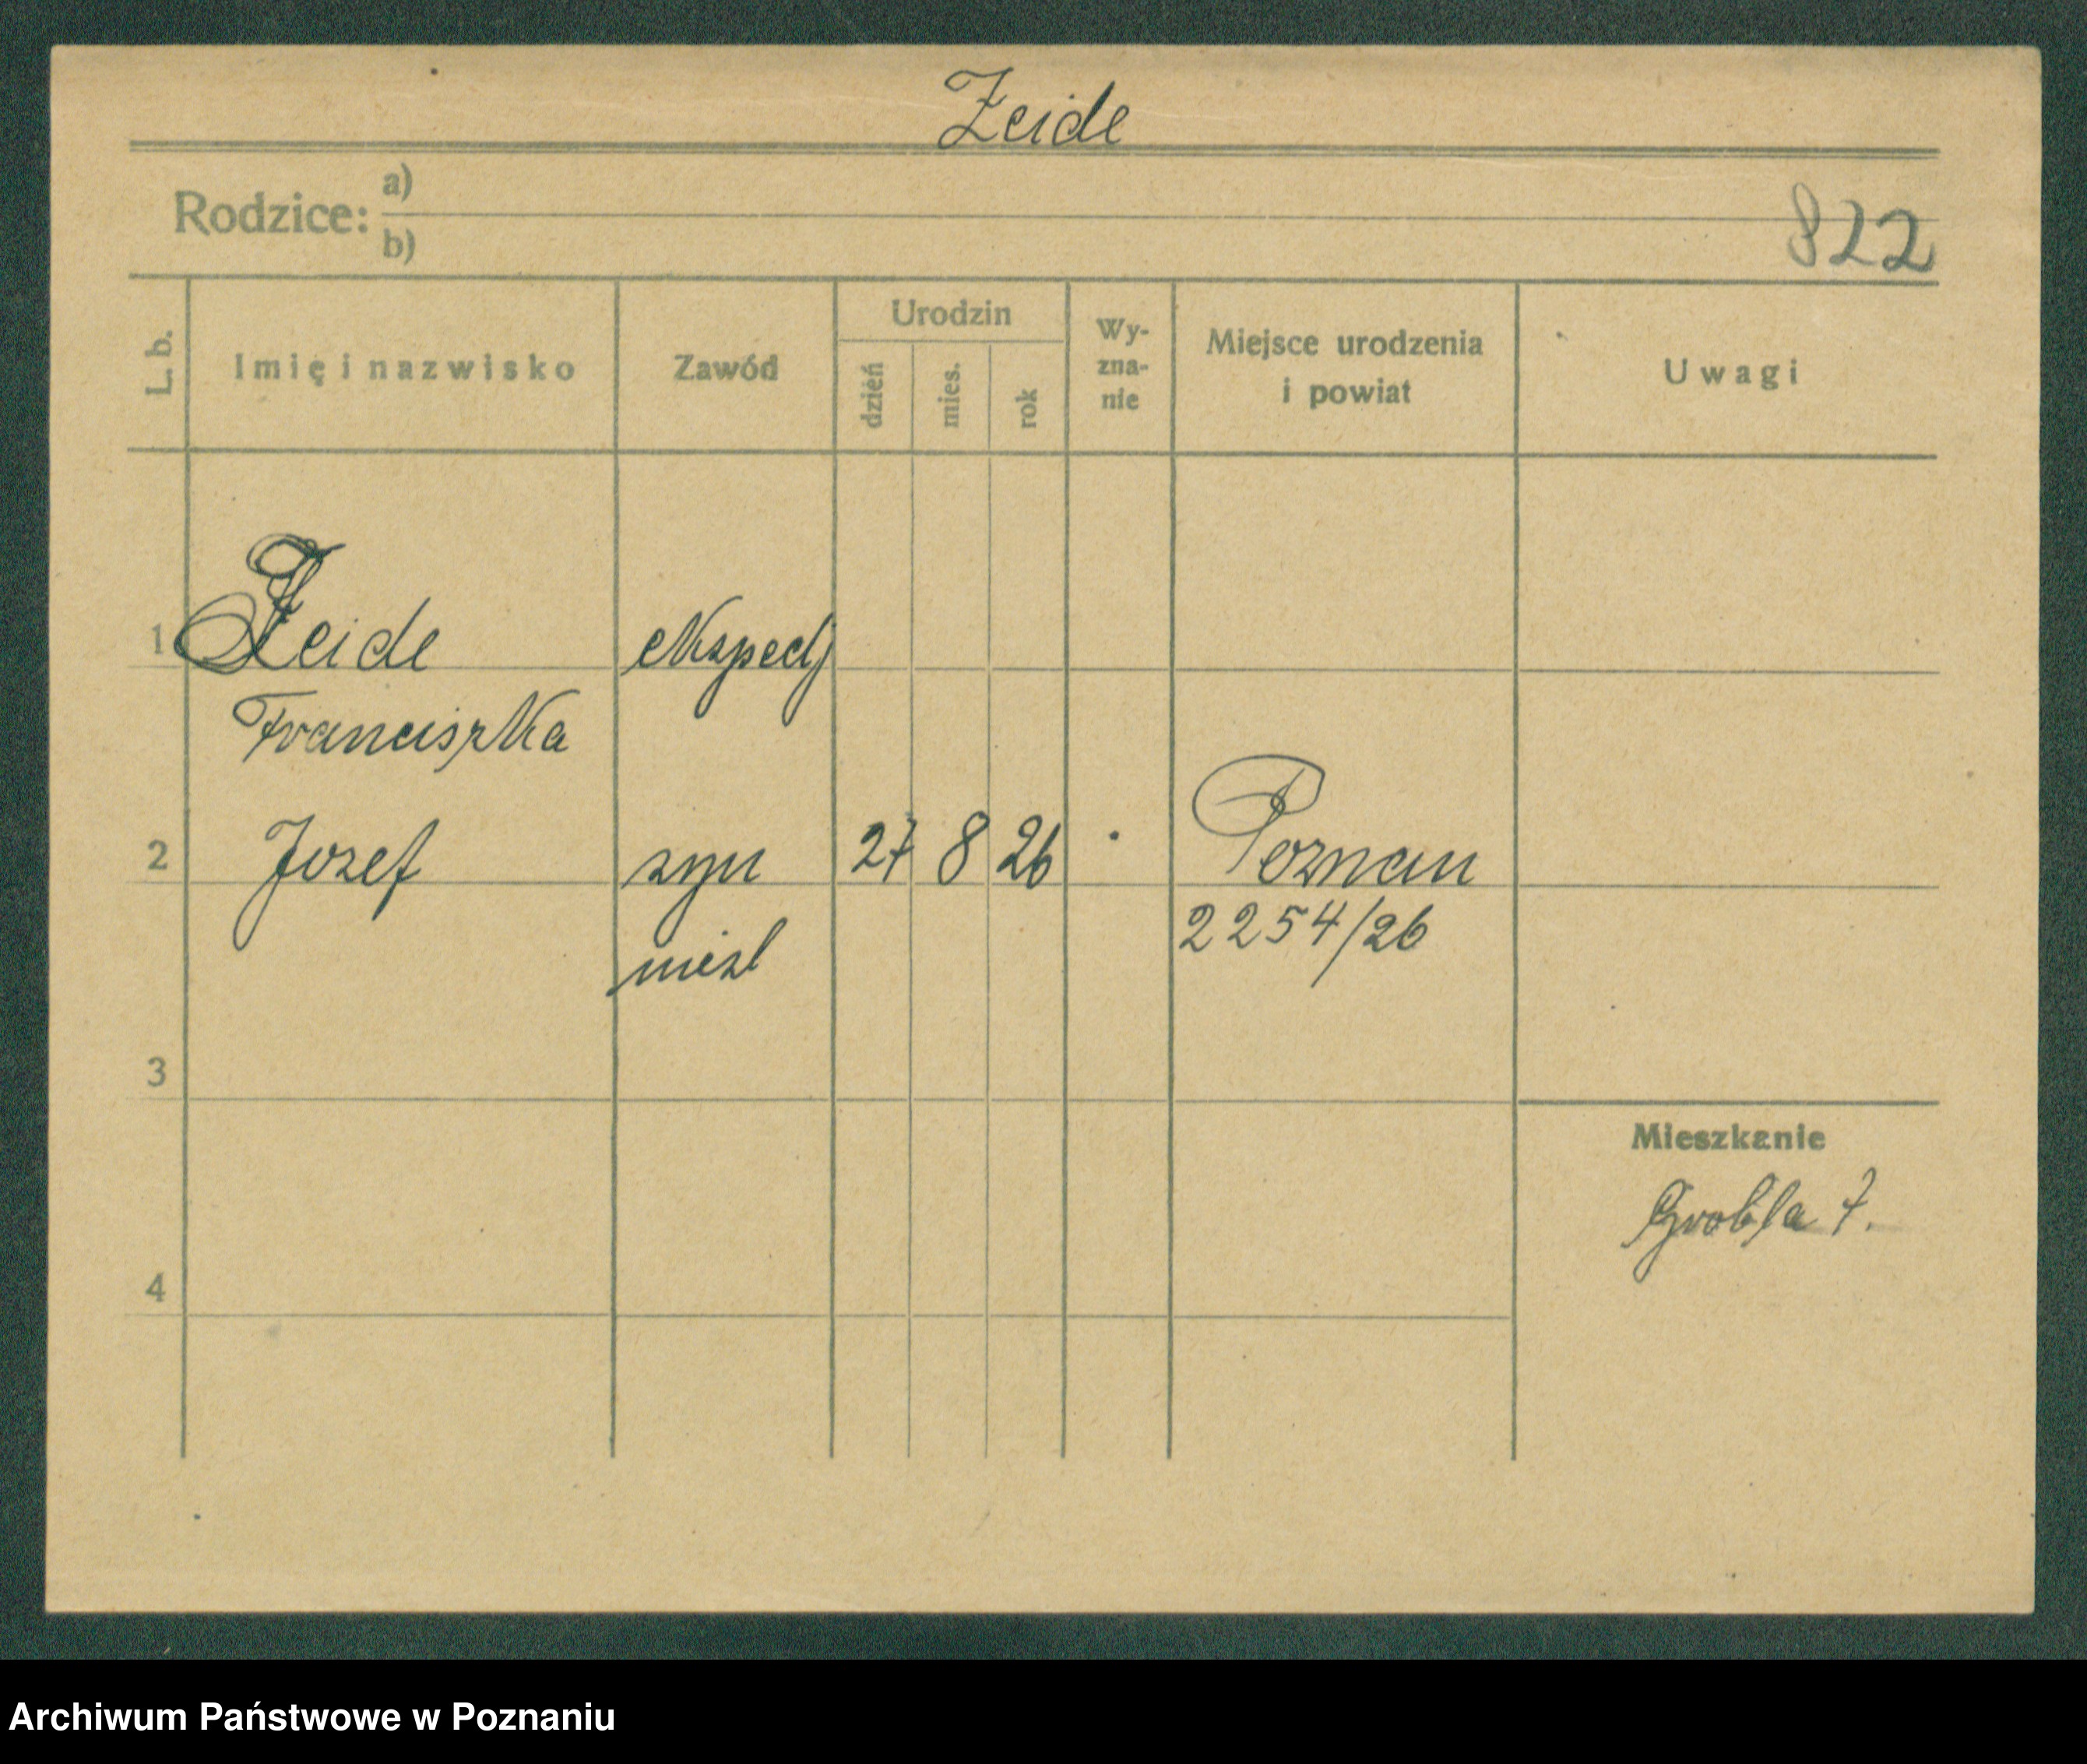 Zeide
Rodzice: a)
b)
822
L. b.
Imię i nazwisko
Zawód
Urodzin
dzień
mies.
rok
Wy-
zna-
nie
Miejsce urodzenia
i powiat
Uwagi
1 Zeide ekspedj
Franciszka
2 Jozef syn 27 8 26 Poznan
nieśl 2254/26
3
Mieszkanie
Grobla 7.
4
Archiwum Państwowe w Poznaniu